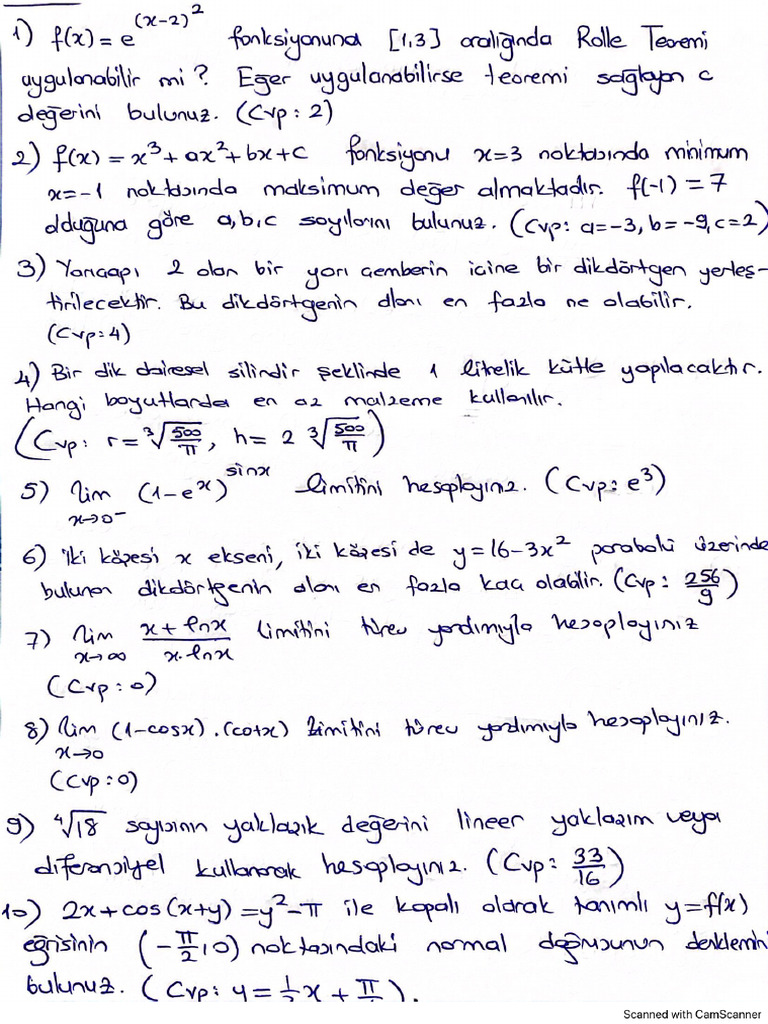 1) f(x) = e^(x-2)^2 fonksiyonuna [1,3] aralığında Rolle Teoremi
uygulanabilir mi? Eğer uygulanabilirse teoremi sağlayan c
değerini bulunuz. (Cvp: 2)
2) f(x) = x³+ax²+bx+c fonksiyonu x=3 noktasında minimum
x=-1 noktasında maksimum değer almaktadır. f(-1) = 7
olduğuna göre a,b,c sayılarını bulunuz. (Cvp: a=-3, b=-9, c=2)
3) Yarıçapı 2 olan bir yarı çemberin içine bir dikdörtgen yerleş-
tirilecektir. Bu dikdörtgenin alanı en fazla ne olabilir.
(Cvp: 4)
4) Bir dik dairesel silindir şeklinde 1 litrelik kütle yapılacaktır.
Hangi boyutlarda en az malzeme kullanılır.
(Cvp: r = ∛(500/π), h = 2 ∛(500/π))
5) lim x→0⁻ (1-e^x)^sinx limitini hesaplayınız. (Cvp: e³)
6) İki köşesi x ekseni, iki köşesi de y=16-3x² parabolü üzerinde
bulunan dikdörtgenin alanı en fazla kaç olabilir. (Cvp: 256/9)
7) lim x→∞ (x+lnx)/(x.lnx) limitini türev yardımıyla hesaplayınız
(Cvp: 0)
8) lim x→0 (1-cosx).(cotx) limitini türev yardımıyla hesaplayınız.
(Cvp: 0)
9) ∜18 sayısının yaklaşık değerini lineer yaklaşım veya
diferansiyel kullanarak hesaplayınız. (Cvp: 33/16)
10) 2x+cos(x+y) = y²-π ile kapalı olarak tanımlı y=f(x)
eğrisinin (-π/2, 0) noktasındaki normal doğrusunun denklemini
bulunuz. (Cvp: y =
Scanned with CamScanner